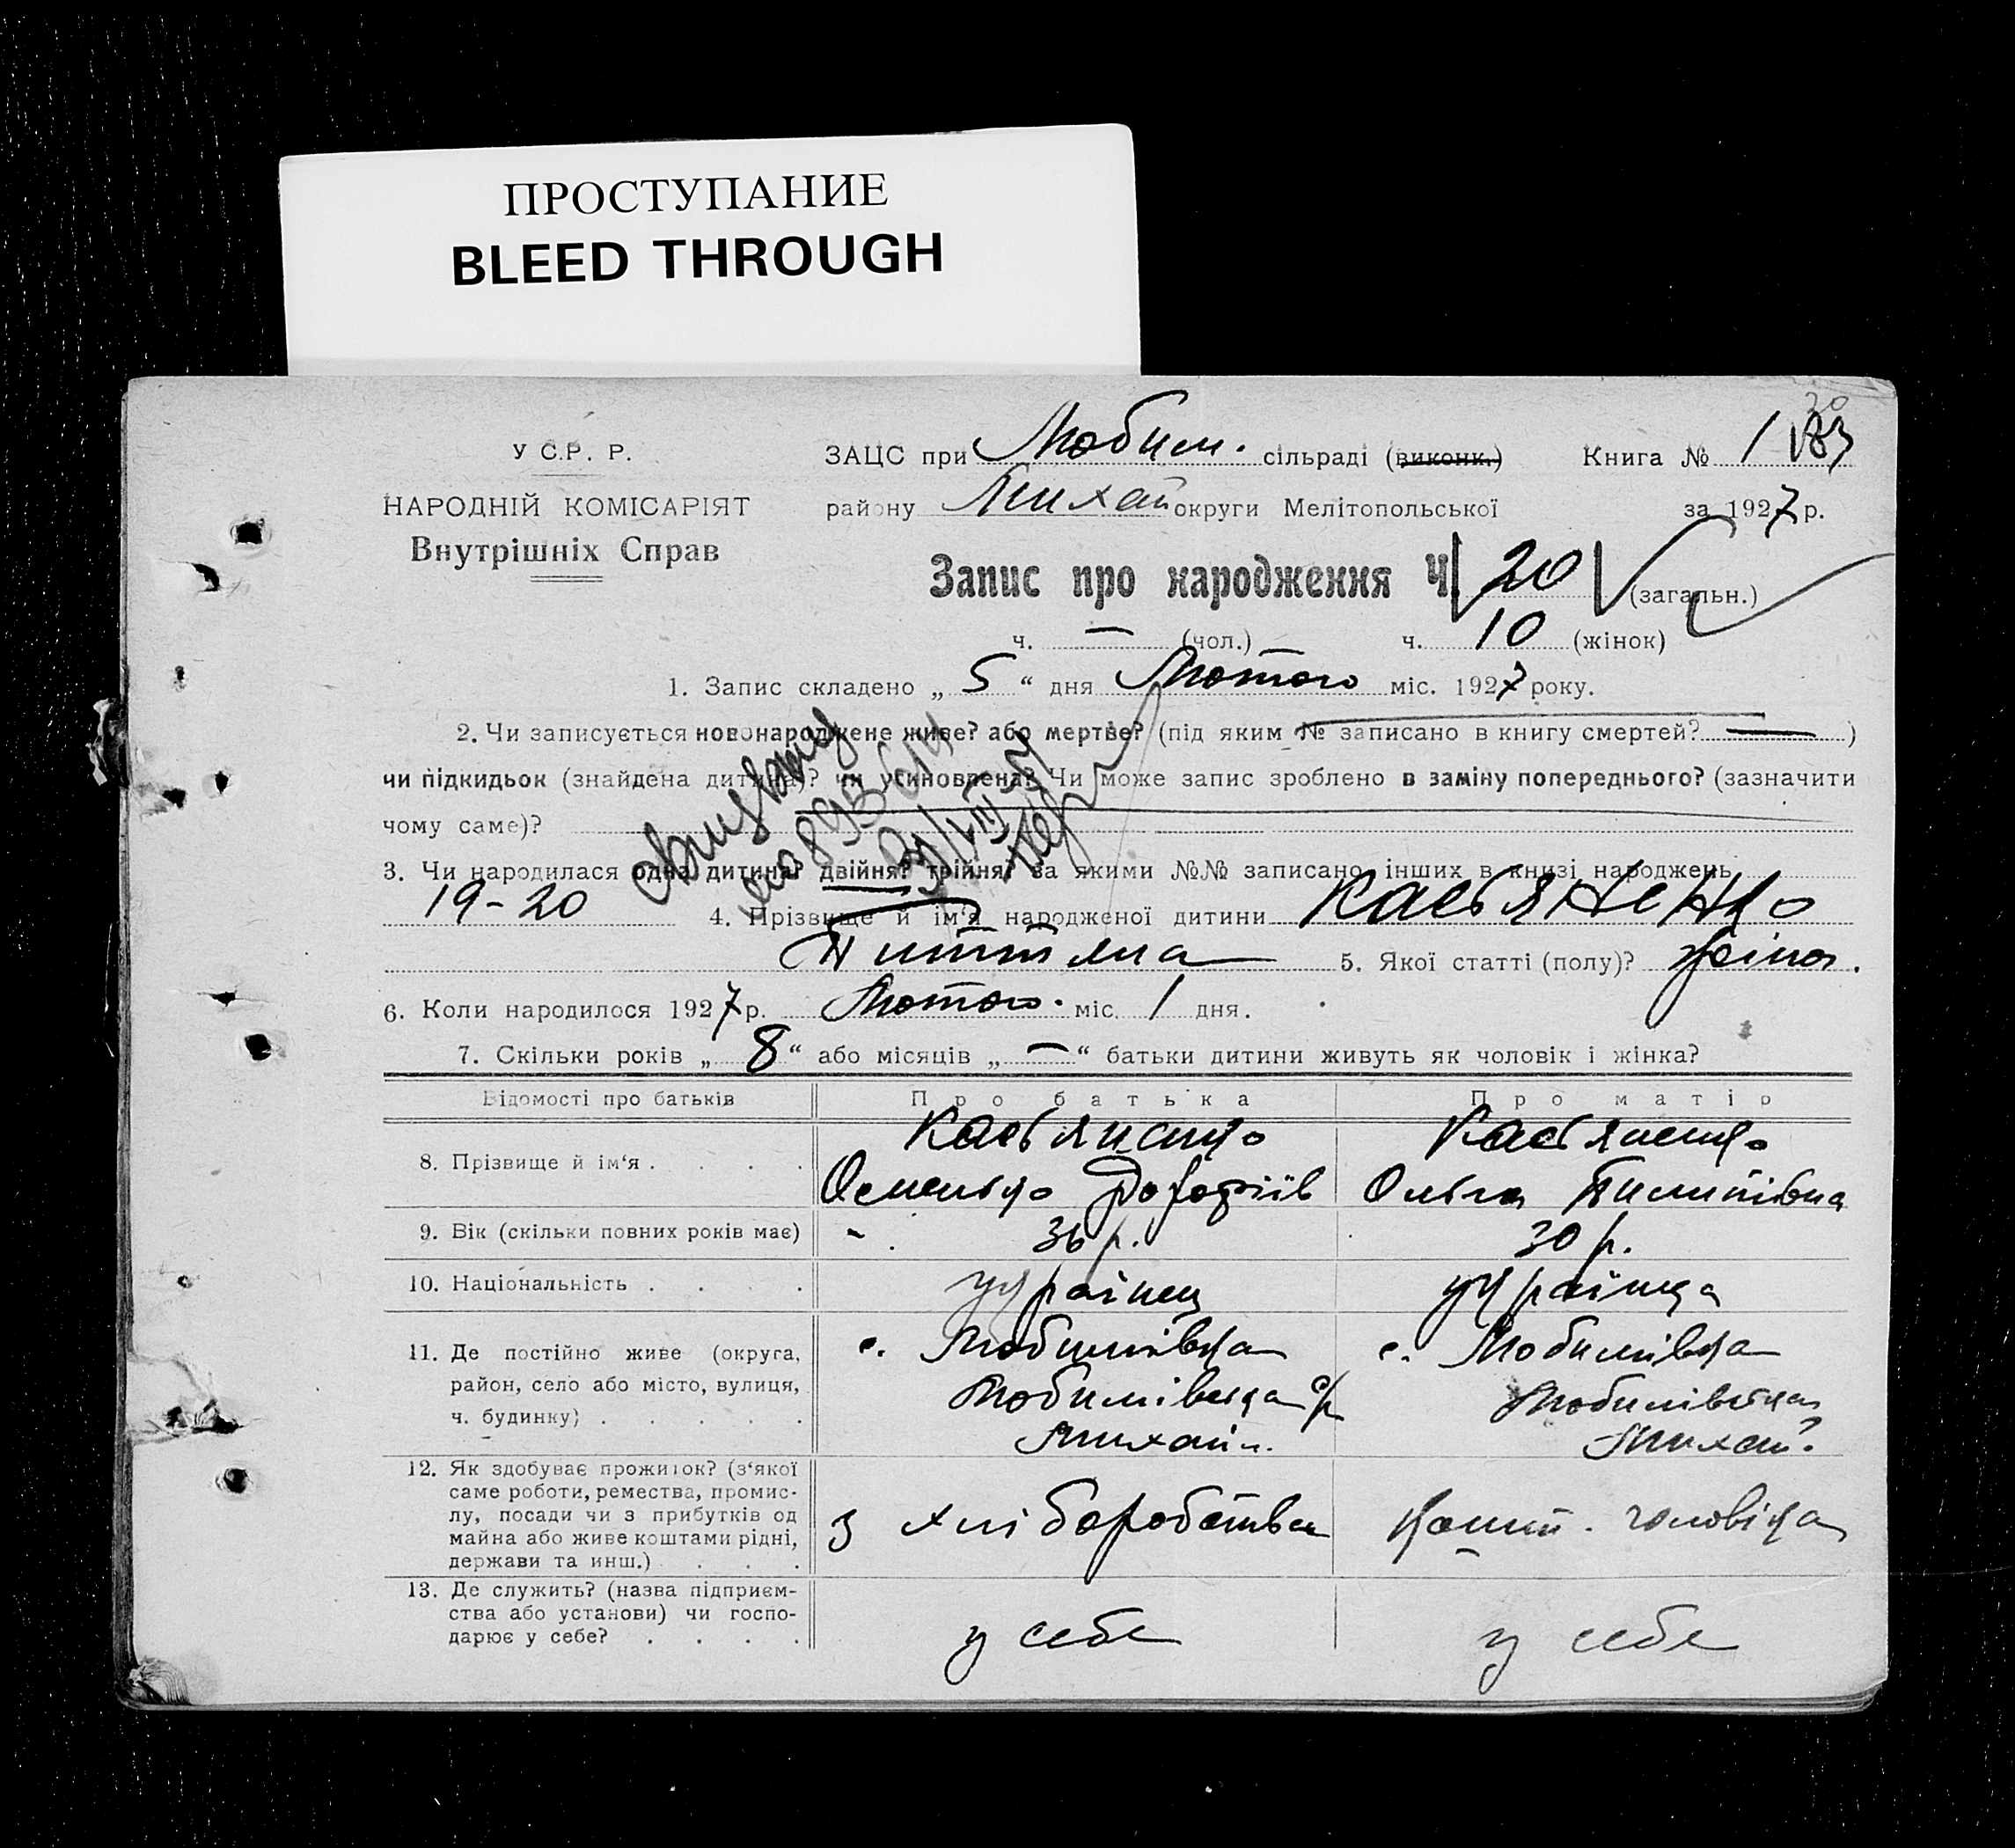 ПРОСТУПАНИЕ
BLEED THROUGH
30
У С.Р. Р.
ЗАЦС при Любим. сільраді (виконк.) Книга № 1 183
НАРОДНІЙ КОМІСАРІЯТ
району Михай округи Мелітопольської за 1927 р.
Внутрішніх Справ
Запис про народження Ч. 20 (загальн.)
ч. — (чол.) ч. 10 (жінок)
1. Запис складено „ 5 “ дня Лютого міс. 1927 року.
2. Чи записується новонароджене живе? або мертве? (під яким № записано в книгу смертей? — )
чи підкидьок (знайдена дитина)? чи усиновлена? Чи може запис зроблено в заміну попереднього? (зазначити
чому саме)?
3. Чи народилася одна дитина? двійня? трійня? за якими №№ записано інших в книзі народжень
19-20 4. Прізвище й ім‘я народженої дитини Касьяненко
5. Якої статті (полу)? жіноч.
6. Коли народилося 1927 р. Лютого. міс. 1 дня.
7. Скільки років „ 8 “ або місяців „ — “ батьки дитини живуть як чоловік і жінка?
Відомості про батьків Про батька Про матір
8. Прізвище й ім‘я . . . . Касьяненко Касьяненко
Омелько Дорофіів Ольга Пилипівна
9. Вік (скільки повних років має) 36 р. 30 р.
10. Національність . . . . українец українка
11. Де постійно живе (округа, район, село або місто, вулиця, ч. будинку) . . . . .
с. Любимівка с. Любимівка
Любимівська с/р Любимівська
Михайл. Михай.
12. Як здобуває прожиток? (з‘якої саме роботи, ремества, промислу, посади чи з прибутків од майна або живе коштами рідні, держави та инш.) . . .
з хліборобства кошт. чоловіка
13. Де служить? (назва підприємства або установи) чи господарює у себе? . . . .
у себе у себе